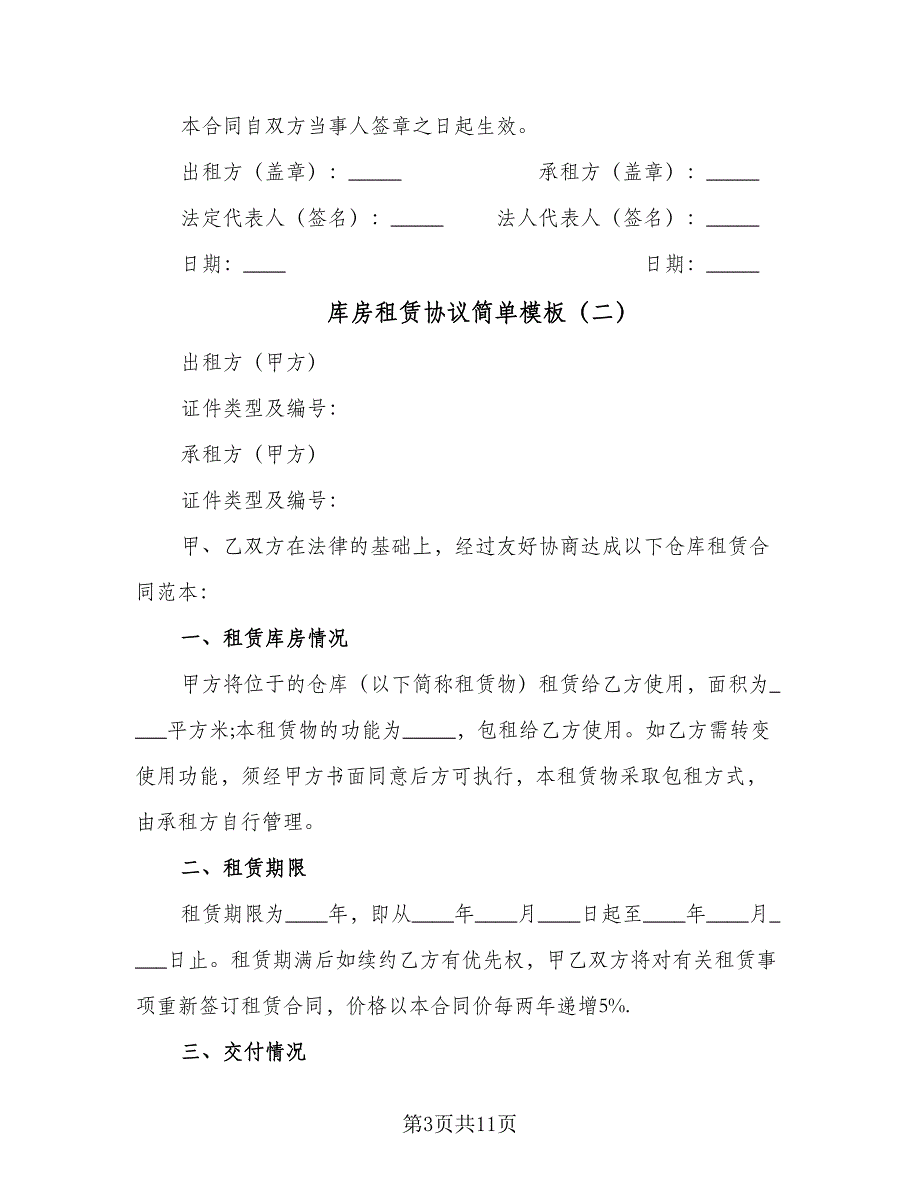 本合同自双方当事人签章之日起生效。
出租方（盖章）：_____ 承租方（盖章）：_____
法定代表人（签名）：_____ 法人代表人（签名）：_____
日期：____ 日期：_____
库房租赁协议简单模板（二）
出租方（甲方）
证件类型及编号：
承租方（甲方）
证件类型及编号：
甲、乙双方在法律的基础上，经过友好协商达成以下仓库租赁合
同范本：
一、租赁库房情况
甲方将位于的仓库（以下简称租赁物）租赁给乙方使用，面积为_
___平方米;本租赁物的功能为_____，包租给乙方使用。如乙方需转变
使用功能，须经甲方书面同意后方可执行，本租赁物采取包租方式，
由承租方自行管理。
二、租赁期限
租赁期限为____年，即从____年____月____日起至____年____月_
___日止。租赁期满后如续约乙方有优先权，甲乙双方将对有关租赁事
项重新签订租赁合同，价格以本合同价每两年递增5%.
三、交付情况
第3页共11页